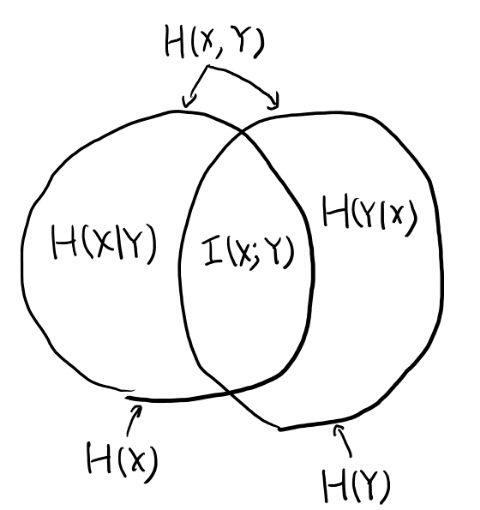 H(X,Y)
H(X|Y)
I(X;Y)
H(Y|X)
H(X)
H(Y)